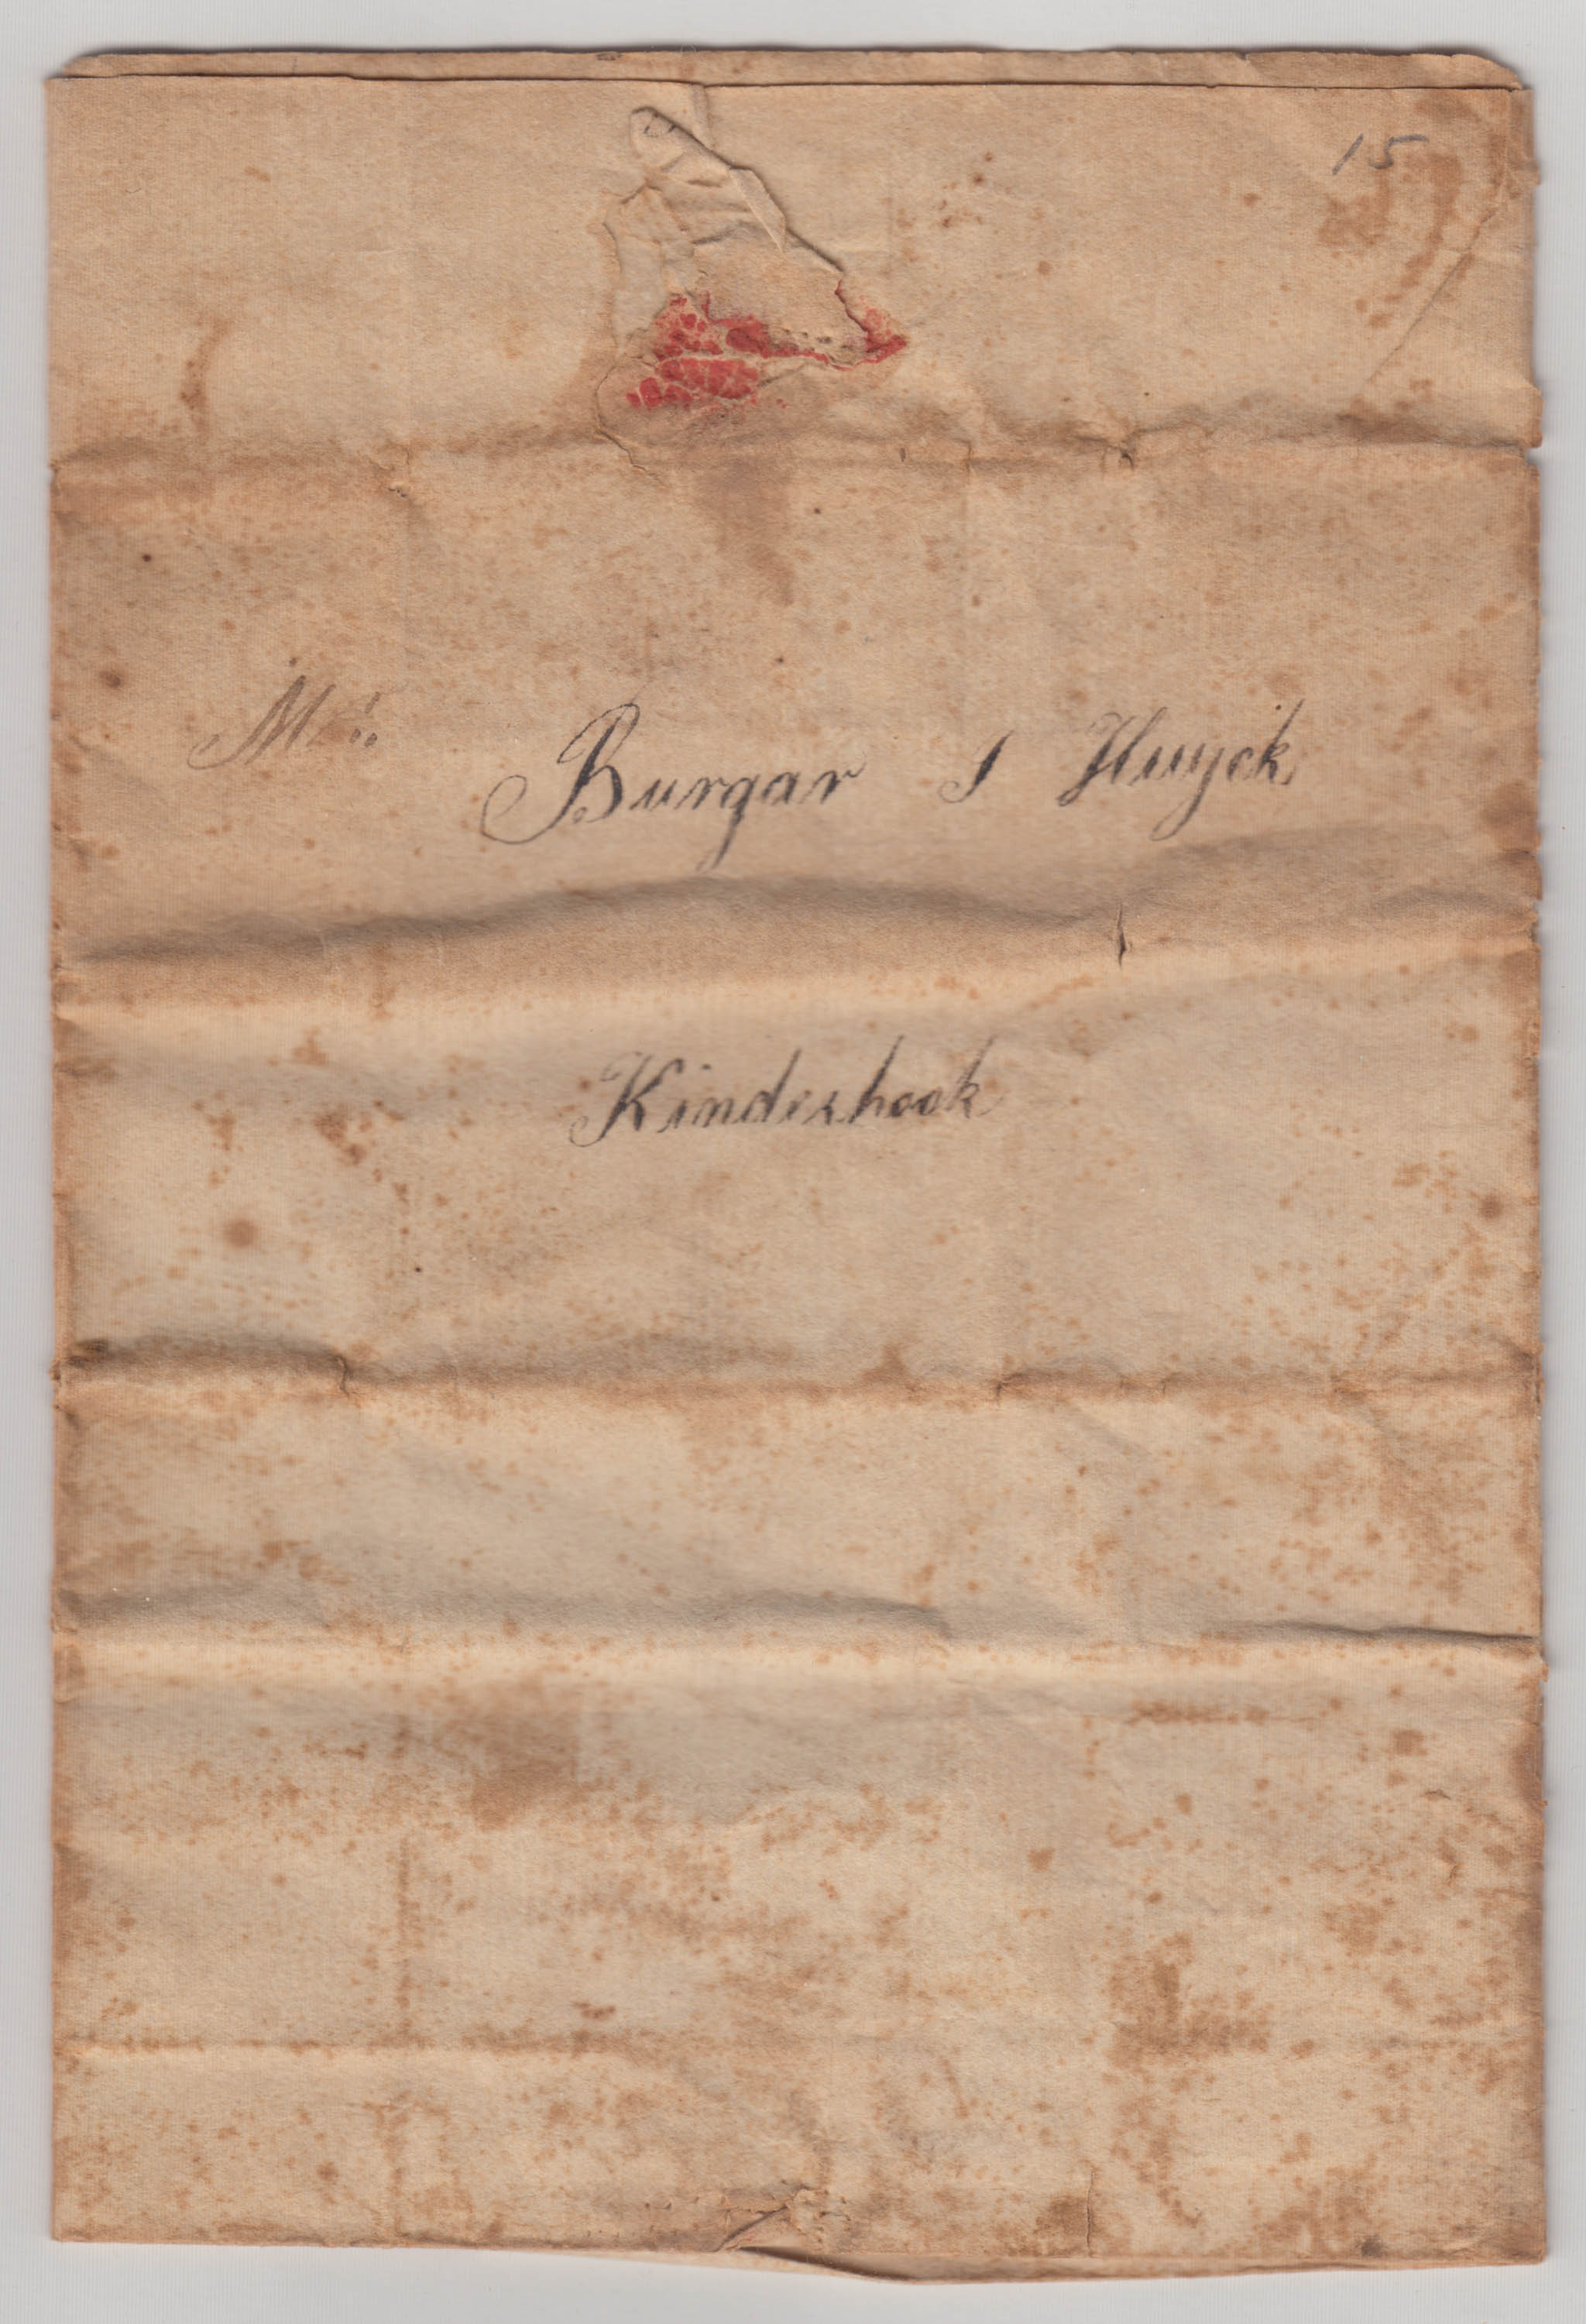 15
Mr. Burgar I Huyck
Kinderhook